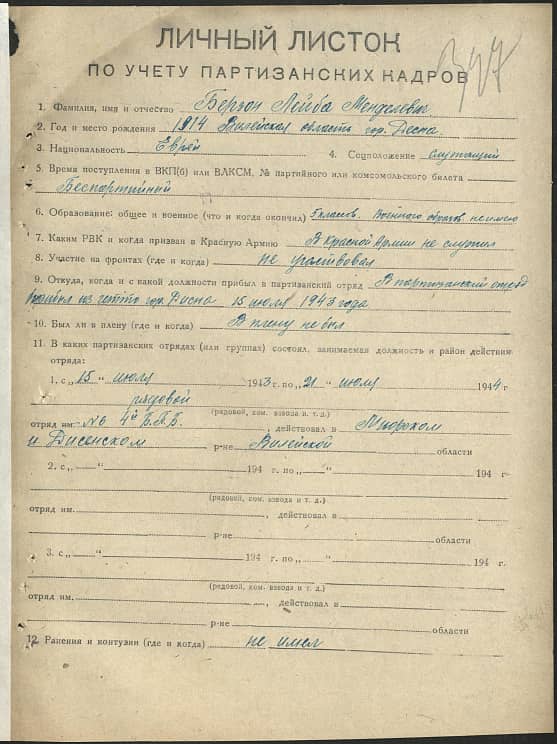 397
ЛИЧНЫЙ ЛИСТОК
ПО УЧЕТУ ПАРТИЗАНСКИХ КАДРОВ
1. Фамилия, имя и отчество Берзон Лейба Менделевич
2. Год и место рождения 1914 Вилейская область гор. Десна
3. Национальность Еврей 4. Соцположение служащий
5. Время поступления в ВКП(б) или ВЛКСМ, № партийного или комсомольского билета
Беспартийный
6. Образование: общее и военное (что и когда окончил) 5 классов. Военного образов не имею
7. Каким РВК и когда призван в Красную Армию В Красной Армии не служил
8. Участие на фронтах (где и когда) не участвовал
9. Откуда, когда и с какой должности прибыл в партизанский отряд В партизанский отряд
прибыл из гетто гор. Дисна 15 июля 1943 года
10. Был ли в плену (где и когда) В плену не был
11. В каких партизанских отрядах (или группах) состоял, занимаемая должность и район действия
отряда:
1. с „15“ июля 1943 г. по „21“ июля 1944 г
рядовой
(рядовой, ком. взвода и т. д.)
отряд им. №6 4й Б.П.Б. , действовал в Миорском
и Дисенском р-не Вилейской области
2. с „ “ 194 г. по „ “ 194 г.
(рядовой, ком. взвода и т. д.)
отряд им. , действовал в
р-не области
3. с „ “ 194 г. по „ “ 194 г.
(рядовой, ком. взвода и т. д.)
отряд им. , действовал в
р-не области
12. Ранения и контузии (где и когда) не имел